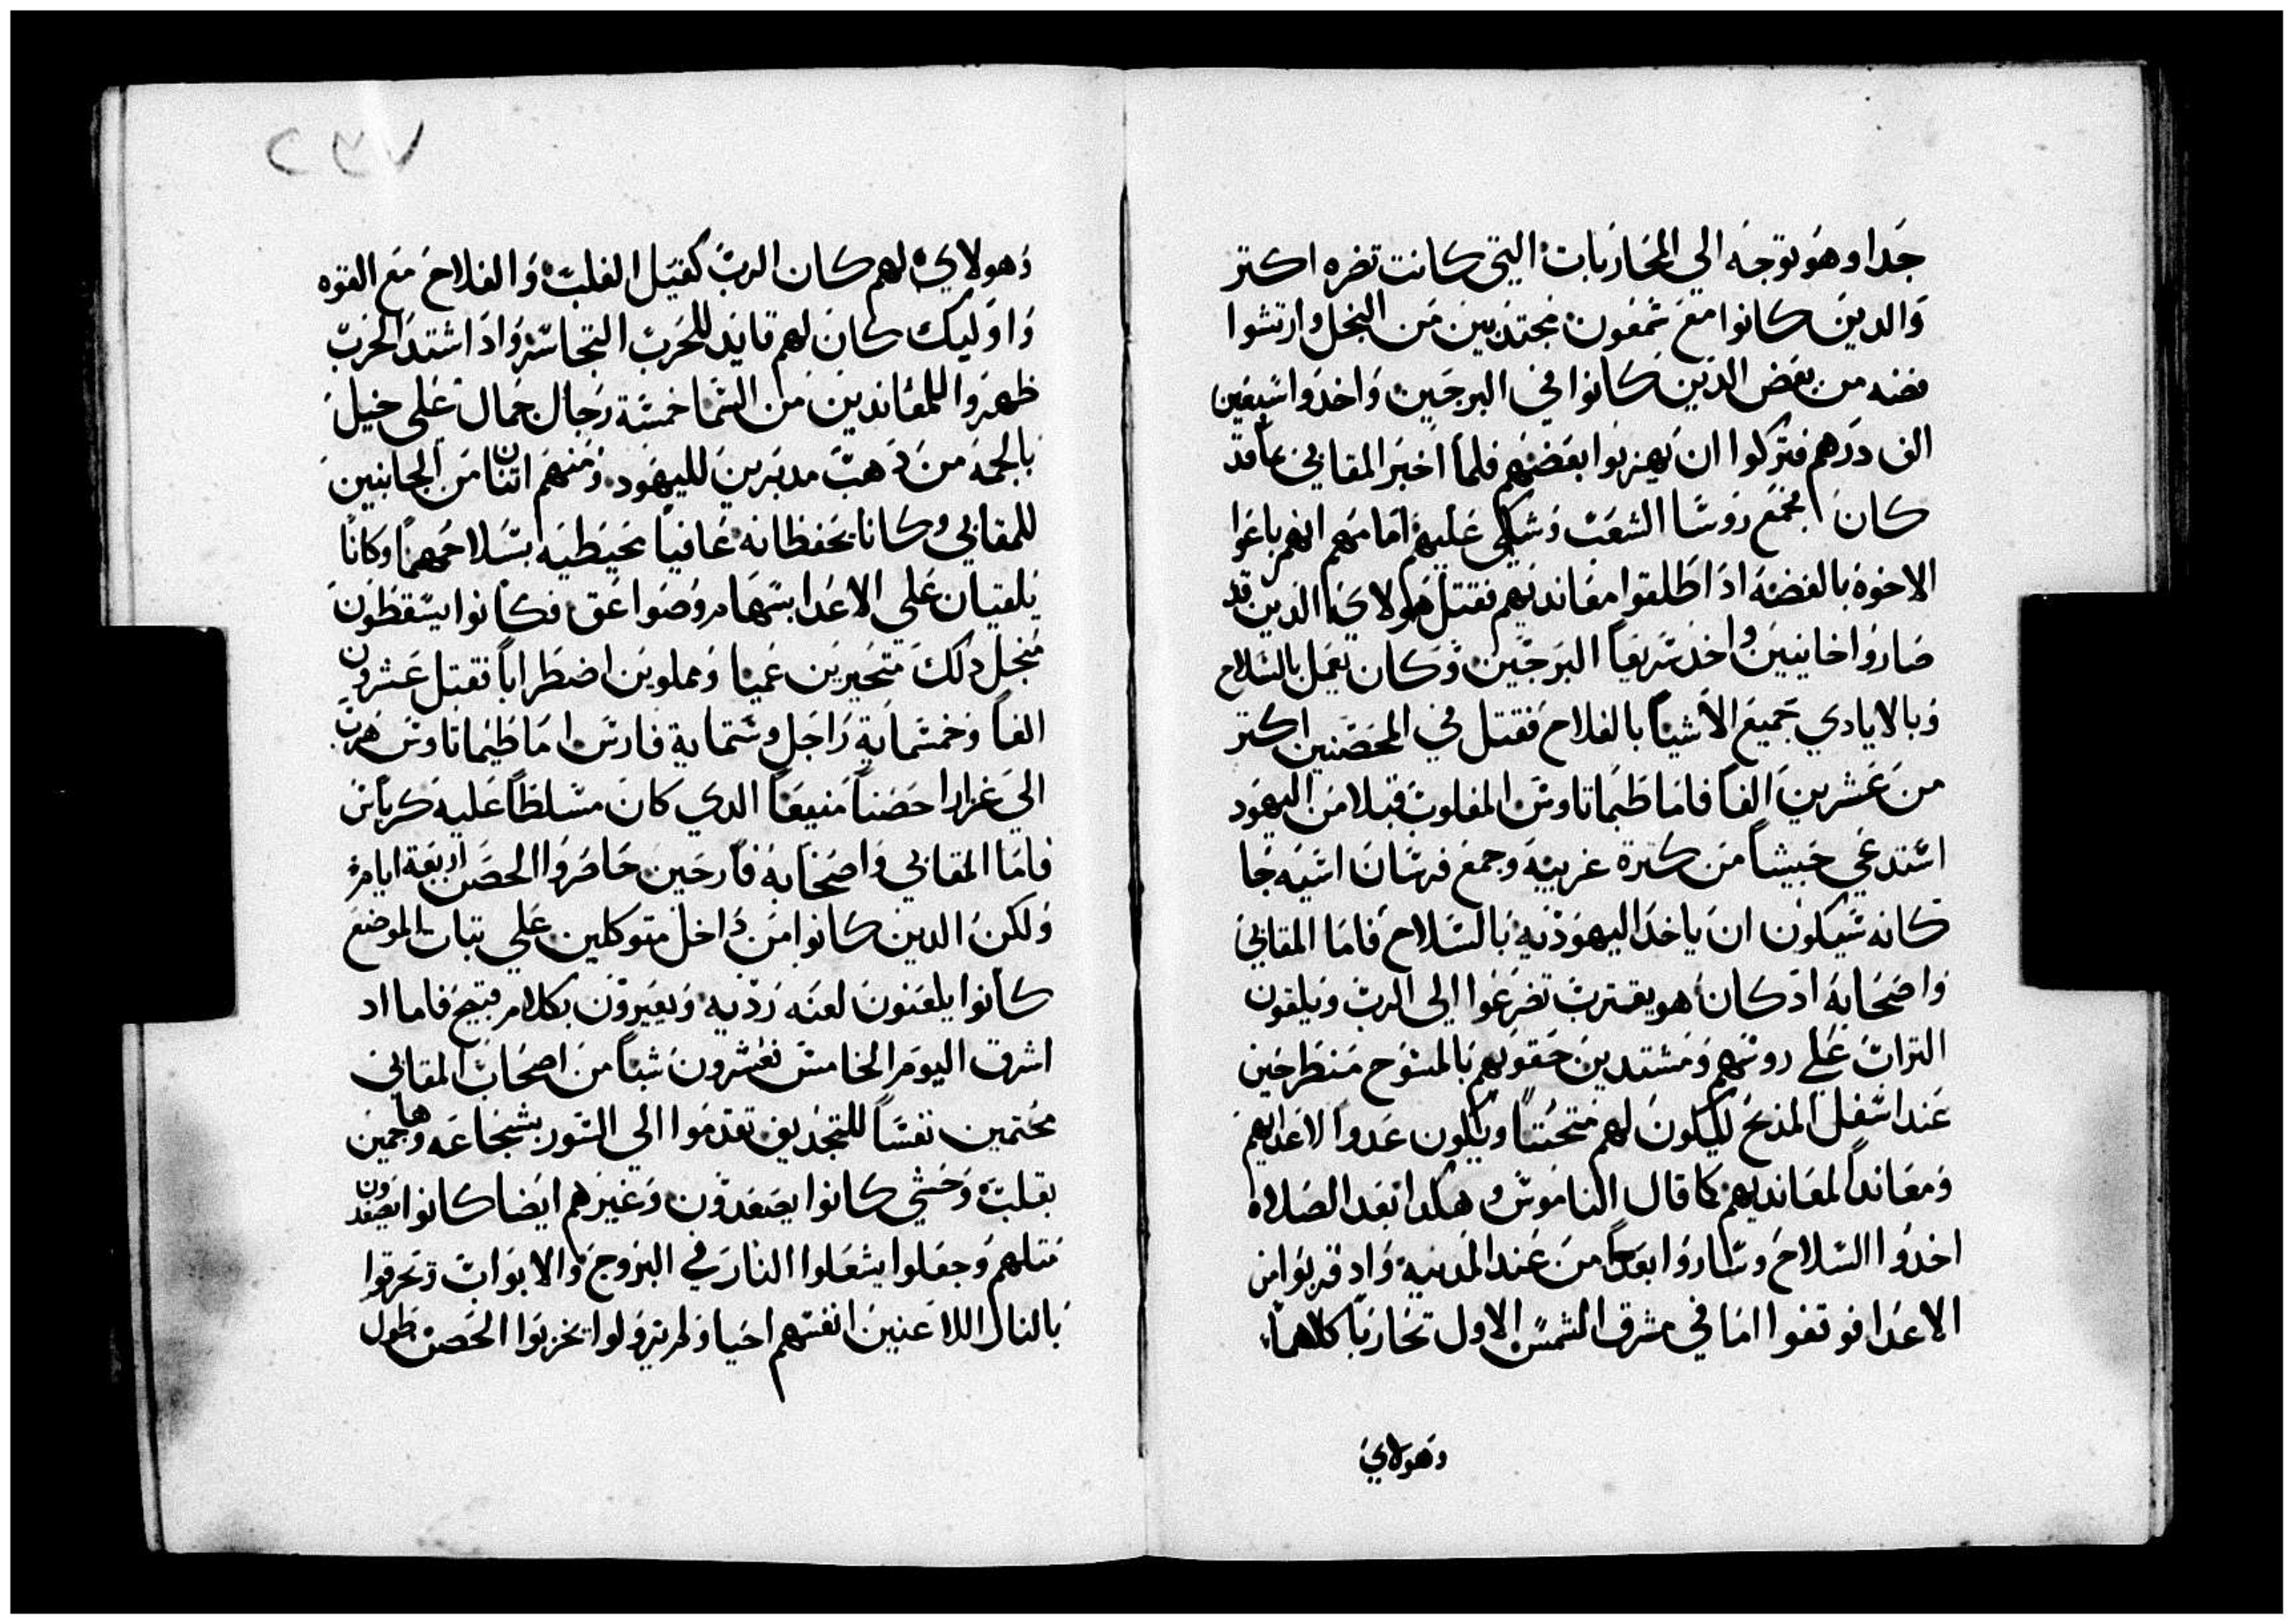 جدا وهو توجه الي المحاربات التي كانت تضره اكتر
والدين كانوا مع شمعون مجتدبين من البخل وارتشوا
فضه من بعض الدين كانوا في البرجين واخدوا سبعين
الف درهم فتركوا ان يهربوا بعضهم فلما اخبر المقابي بما قد
كان جمع روسا الشعب وشكي عليهم امامهم انهم باعوا
الاخوة بالفضه اد اطلقوا معانديهم فقتل هولاي الدين قد
صاروا خاينين واخد سريعا البرجين وكان يعمل بالسلاح
وبالايادي جميع الاشيا بالفلاح فقتل في المحصنين اكتر
من عشرين الفا فاما طيماتاوس المغلوب قبلا من اليهود
استدعي جيشا من كترة غريبه وجمع فرسان اسيه جا
كانه سيكون ان ياخد اليهوديه بالسلاح فاما المقابي
واصحابه اد كان هو يقترب تضرعوا الي الرب ويلقون
التراب علي روسهم ومشتدين حقويهم بالمسوح منطرحين
عند اسفل المدبح ليكون لهم متحننا ويكون عدوا لاعدايهم
ومعاندا لمعانديهم كما قال الناموس وهكدا بعد الصلاه
اخدوا السلاح وساروا بعيدا من عند المدينه واد قربوا من
الاعدا فوقفوا اما في مشرق الشمس الاول تحاربا كلاهما
وهولاي
٢٣٧
وهولاي لهم كان الرب كفيل الغلبه والفلاح مع القوه
واوليك كان لهم قايد للحرب التجاسر واد اشتد الحرب
ظهروا للمعاندين من السما خمسة رجال جمال علي خيل
بالجمه من دهب مدبرين لليهود ومنهم اتنان من الجانبين
للمقابي وكانا يحفظانه عافيا محيطيه بسلاحهما وكانا
يلقيان علي الاعدا بسهام وصواعق فكانوا يسقطون
منجل دلك متحيرين عميا ومملوين اضطرابا فقتل عشرون
الفا وخمسماية راجل وستماية فارس اما طيماتاوس هرب
الي غزارا حصنا منيعا الدي كان مسلطا عليه كرياس
فاما المقابي واصحابه فارحين حاصروا الحصن اربعة ايام
ولكن الدين كانوا من داخل متوكلين علي تبات الموضع
كانوا يلعنون لعنه رديه ويعيرون بكلام قبيح فاما اد
اشرق اليوم الخامس فعشرون شبا من اصحاب المقابي
محتمين نفسا للتجديف تقدموا الي السور بشجاعه وهاجمين
بقلب وحشي كانوا يصعدون وغيرهم ايضا كانوا يصعدون
متلهم وجعلوا يشعلوا النار في البروج والابواب وتحرقوا
بالنار اللاعنين انفسهم احيا ولم يزولوا يخربوا الحصن طول